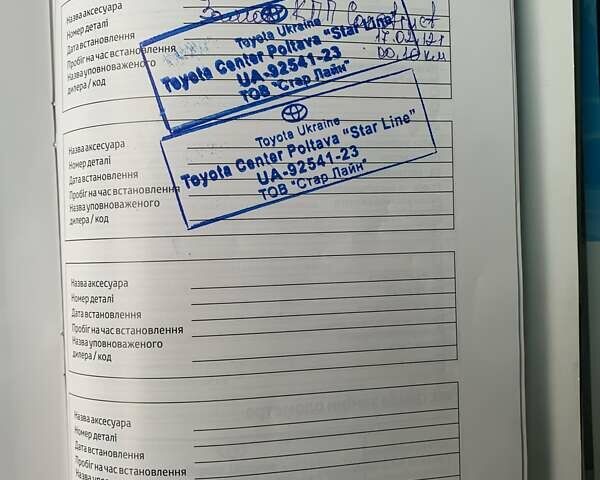 Назва аксесуара
КПП
Номер деталі
Дата встановлення 17.02.12г
Пробіг на час встановлення 00,10 км
Назва уповноваженого
дилера / код
Toyota Ukraine
Toyota Center Poltava "Star Line"
UA-92541-23
ТОВ "Стар Лайн"
Toyota Ukraine
Toyota Center Poltava "Star Line"
UA-92541-23
ТОВ "Стар Лайн"
Назва аксесуара
Номер деталі
Дата встановлення
Пробіг на час встановлення
Назва уповноваженого
дилера / код
Назва аксесуара
Номер деталі
Дата встановлення
Пробіг на час встановлення
Назва уповноваженого
дилера / код
Назва аксесуара
Номер деталі
Дата встановлення
Пробіг на час встановлення
Назва уповноваженого